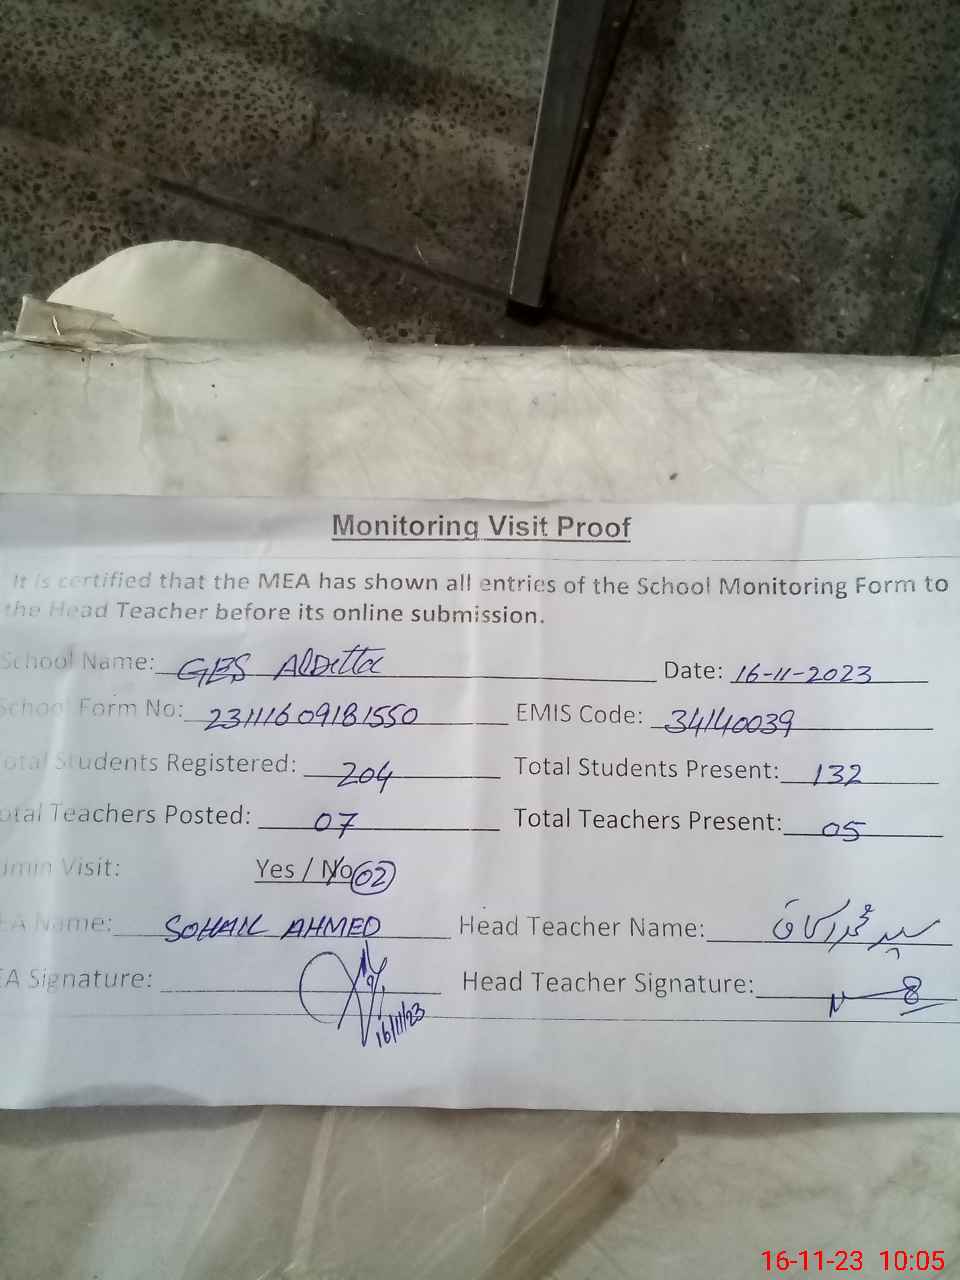 Monitoring Visit Proof
It is certified that the MEA has shown all entries of the School Monitoring Form to
the Head Teacher before its online submission.
School Name: GES AlDitta Date: 16-11-2023
School Form No: 23111609181550 EMIS Code: 34140039
otal Students Registered: 204 Total Students Present: 132
otal Teachers Posted: 07 Total Teachers Present: 05
dmin Visit: Yes / No 02
EA Name: SOHAIL AHMED Head Teacher Name: سید محمد
EA Signature: Head Teacher Signature:
16/11/23
16-11-23 10:05